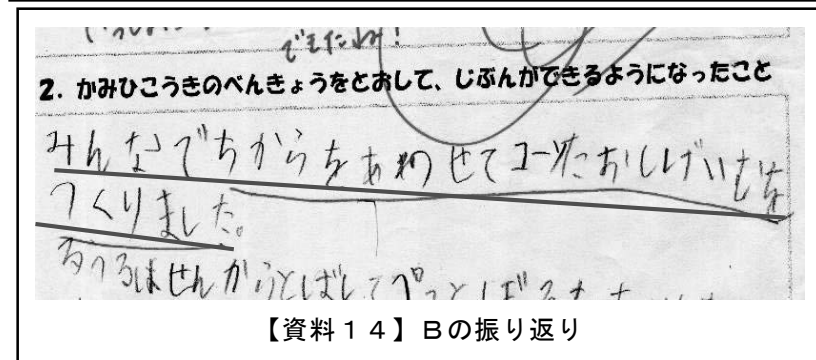 できたね!
2. かみひこうきのべんきょうをとおして、じぶんができるようになったこと
みんなでちからをあわせてコーンたおしげいむを
つくりました。
るうるはせんからとばしてペっとぼ
【資料14】Bの振り返り